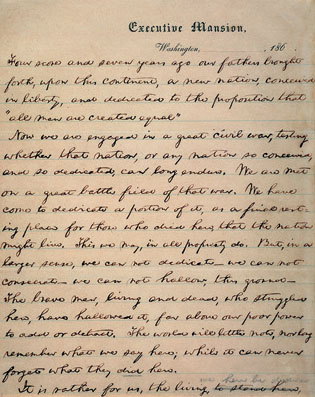 Executive Mansion,
Washington, , 186 .
Four score and seven years ago our fathers brought
forth, upon this continent, a new nation, conceived
in liberty, and dedicated to the proposition that
"all men are created equal"
Now we are engaged in a great civil war, testing
whether that nation, or any nation so conceived,
and so dedicated, can long endure. We are met
on a great battle field of that war. We have
come to dedicate a portion of it, as a final rest-
ing place for those who died here, that the nation
might live. This we may, in all propriety do. But, in a
larger sense, we can not dedicate— we can not
consecrate— we can not hallow, this ground—
The brave men, living and dead, who struggled
here, have hallowed it, far above our poor power
to add or detract. The world will little note, nor long
remember what we say here; while it can never
forget what they did here.
It is rather for us, the living, to stand here,
we here be dedica